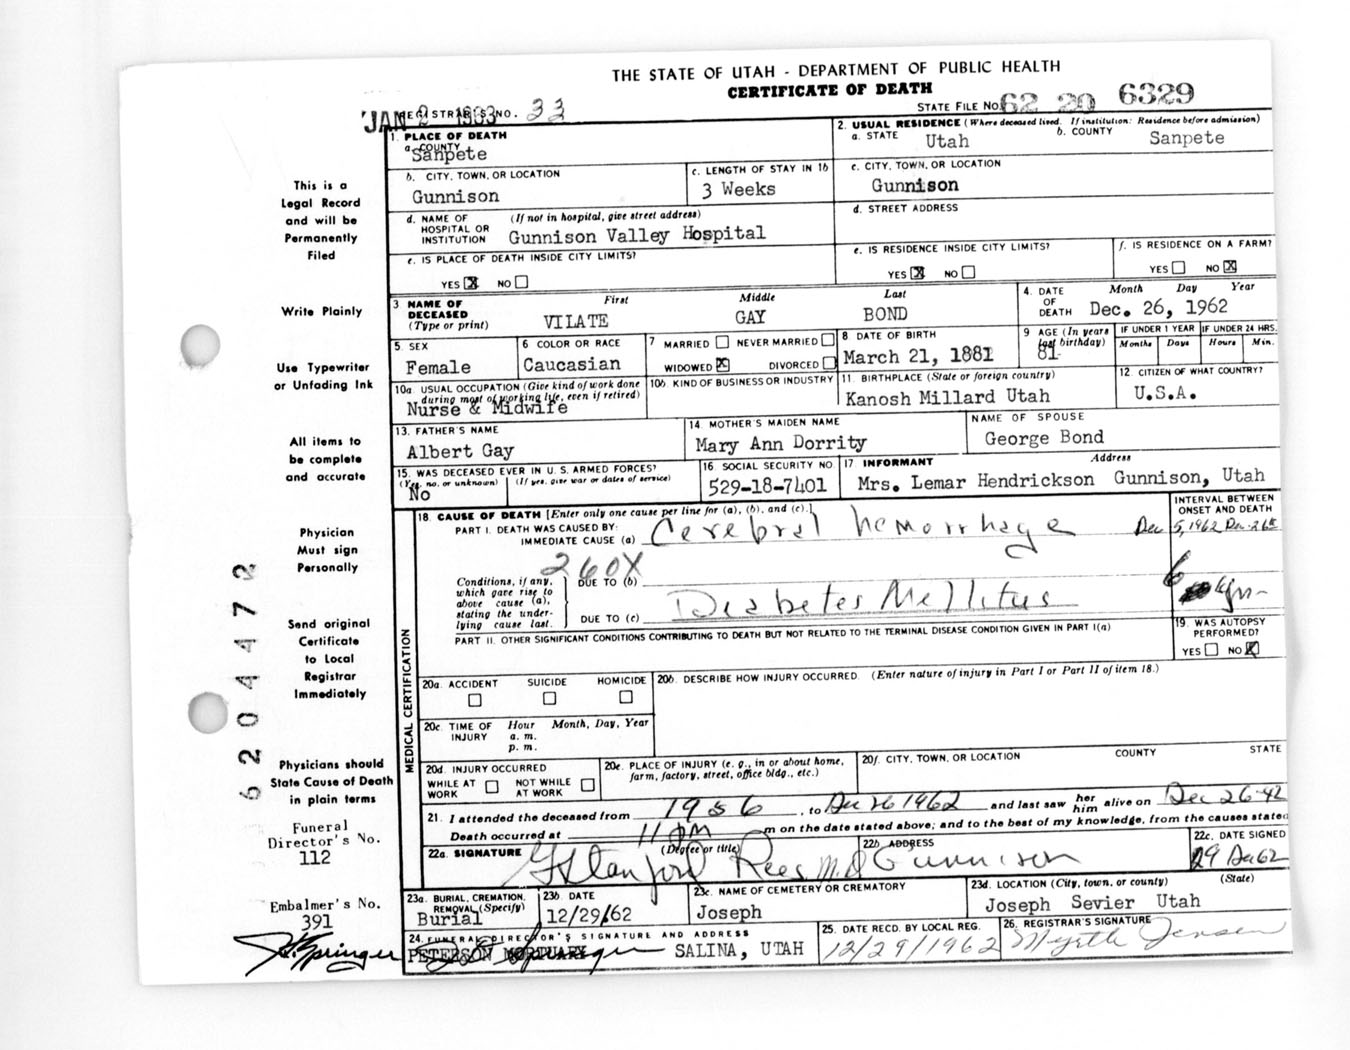 THE STATE OF UTAH - DEPARTMENT OF PUBLIC HEALTH
CERTIFICATE OF DEATH
JAN 2 1963 REGISTRAR'S NO. 33
STATE FILE NO. 62 20 6329
1. PLACE OF DEATH
a. COUNTY
Sanpete
2. USUAL RESIDENCE (Where deceased lived. If institution: Residence before admission)
a. STATE Utah b. COUNTY Sanpete
b. CITY, TOWN, OR LOCATION
Gunnison
c. LENGTH OF STAY IN 1b
3 Weeks
c. CITY, TOWN, OR LOCATION
Gunnison
d. NAME OF HOSPITAL OR INSTITUTION (If not in hospital, give street address)
Gunnison Valley Hospital
d. STREET ADDRESS
e. IS PLACE OF DEATH INSIDE CITY LIMITS?
YES X NO
e. IS RESIDENCE INSIDE CITY LIMITS?
YES X NO
f. IS RESIDENCE ON A FARM?
YES NO X
3 NAME OF DECEASED (Type or print)
First Middle Last
VILATE GAY BOND
4. DATE OF DEATH
Month Day Year
Dec. 26, 1962
5. SEX
Female
6 COLOR OR RACE
Caucasian
7 MARRIED NEVER MARRIED
WIDOWED X DIVORCED
8 DATE OF BIRTH
March 21, 1881
9 AGE (In years last birthday)
81
IF UNDER 1 YEAR
Months Days
IF UNDER 24 HRS.
Hours Min.
10a. USUAL OCCUPATION (Give kind of work done during most of working life, even if retired)
Nurse & Midwife
10b. KIND OF BUSINESS OR INDUSTRY
11. BIRTHPLACE (State or foreign country)
Kanosh Millard Utah
12 CITIZEN OF WHAT COUNTRY?
U.S.A.
13. FATHER'S NAME
Albert Gay
14. MOTHER'S MAIDEN NAME
Mary Ann Dorrity
NAME OF SPOUSE
George Bond
15. WAS DECEASED EVER IN U. S. ARMED FORCES?
(Yes, no, or unknown) (If yes, give war or dates of service)
No
16. SOCIAL SECURITY NO.
529-18-7401
17 INFORMANT Address
Mrs. Lemar Hendrickson Gunnison, Utah
18. CAUSE OF DEATH [Enter only one cause per line for (a), (b), and (c).]
INTERVAL BETWEEN ONSET AND DEATH
PART I. DEATH WAS CAUSED BY:
IMMEDIATE CAUSE (a) Cerebral hemorrhage Dec 5, 1962 Dec. 26th
260X
Conditions, if any, which gave rise to above cause (a), stating the underlying cause last.
DUE TO (b)
DUE TO (c) Diabetes Mellitus 6 yrs
PART II. OTHER SIGNIFICANT CONDITIONS CONTRIBUTING TO DEATH BUT NOT RELATED TO THE TERMINAL DISEASE CONDITION GIVEN IN PART I(a)
19. WAS AUTOPSY PERFORMED?
YES NO X
MEDICAL CERTIFICATION
20a. ACCIDENT SUICIDE HOMICIDE
20b. DESCRIBE HOW INJURY OCCURRED. (Enter nature of injury in Part I or Part II of item 18.)
20c. TIME OF INJURY Hour Month, Day, Year
a. m.
p. m.
20d. INJURY OCCURRED
WHILE AT WORK NOT WHILE AT WORK
20e. PLACE OF INJURY (e. g., in or about home, farm, factory, street, office bldg., etc.)
20f. CITY, TOWN, OR LOCATION COUNTY STATE
21. I attended the deceased from 1956, to Dec 26 1962 and last saw her him alive on Dec 26-42
Death occurred at 11 PM m on the date stated above; and to the best of my knowledge, from the causes stated
22a. SIGNATURE (Degree or title)
G Stanford Rees M.D
22b ADDRESS
Gunnison
22c. DATE SIGNED
29 Dec 62
23a. BURIAL, CREMATION, REMOVAL (Specify)
Burial
23b. DATE
12/29/62
23c. NAME OF CEMETERY OR CREMATORY
Joseph
23d. LOCATION (City, town, or county) (State)
Joseph Sevier Utah
24. FUNERAL DIRECTOR'S SIGNATURE AND ADDRESS
PETERSON MORTUARY SALINA, UTAH
25. DATE RECD. BY LOCAL REG.
12/29/1962
26. REGISTRAR'S SIGNATURE
Myrtle Jensen
This is a
Legal Record
and will be
Permanently
Filed
Write Plainly
Use Typewriter
or Unfading Ink
All items to
be complete
and accurate
Physician
Must sign
Personally
Send original
Certificate
to Local
Registrar
Immediately
Physicians should
State Cause of Death
in plain terms
Funeral
Director's No.
112
Embalmer's No.
391
Springer
6204472